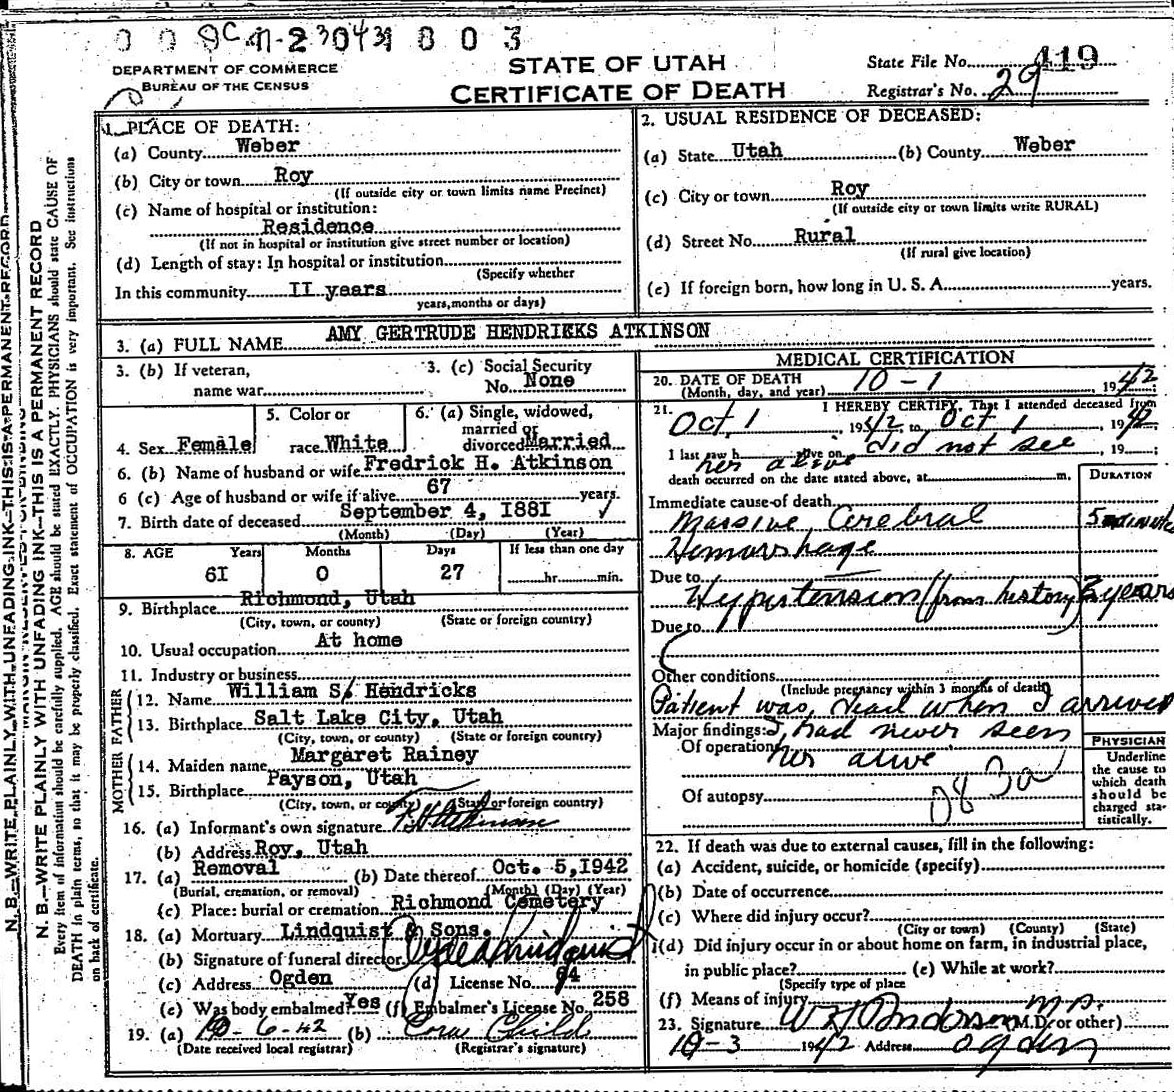 0 0 9C 11-23043 8 0 3
STATE OF UTAH
CERTIFICATE OF DEATH
DEPARTMENT OF COMMERCE
BUREAU OF THE CENSUS
State File No. 419
Registrar's No. 29
1. PLACE OF DEATH:
(a) County Weber
(b) City or town Roy
(If outside city or town limits name Precinct)
(c) Name of hospital or institution:
Residence
(If not in hospital or institution give street number or location)
(d) Length of stay: In hospital or institution
(Specify whether
In this community II years
years, months or days)
2. USUAL RESIDENCE OF DECEASED:
(a) State Utah (b) County Weber
(c) City or town Roy
(If outside city or town limits write RURAL)
(d) Street No. Rural
(If rural give location)
(e) If foreign born, how long in U. S. A. years.
3. (a) FULL NAME AMY GERTRUDE HENDRICKS ATKINSON
3. (b) If veteran,
name war
3. (c) Social Security
No. None
4. Sex Female
5. Color or
race White
6. (a) Single, widowed,
married or
divorced Married
6. (b) Name of husband or wife Fredrick H. Atkinson
6 (c) Age of husband or wife if alive 67 years.
7. Birth date of deceased September 4, I88I
(Month) (Day) (Year)
8. AGE Years Months Days If less than one day
6I 0 27 hr. min.
9. Birthplace Richmond, Utah
(City, town, or county) (State or foreign country)
10. Usual occupation At home
11. Industry or business
FATHER
12. Name William S. Hendricks
13. Birthplace Salt Lake City, Utah
(City, town, or county) (State or foreign country)
MOTHER
14. Maiden name Margaret Rainey
15. Birthplace Payson, Utah
(City, town, or county) (State or foreign country)
16. (a) Informant's own signature F. H. Atkinson
(b) Address Roy, Utah
17. (a) Removal (b) Date thereof Oct. 5, 1942
(Burial, cremation, or removal) (Month) (Day) (Year)
(c) Place: burial or cremation Richmond Cemetery
18. (a) Mortuary Lindquist & Sons.
(b) Signature of funeral director Clyde Lindquist
(c) Address Ogden (d) License No. 64
(e) Was body embalmed? Yes (f) Embalmer's License No. 258
19. (a) 10-6-42 (b) Child
(Date received local registrar) (Registrar's signature)
MEDICAL CERTIFICATION
20. DATE OF DEATH 10 - 1, 1942
(Month, day, and year)
21. I HEREBY CERTIFY, That I attended deceased from
Oct 1, 1942, to Oct 1, 1942
I last saw h alive on did not see, 19
her alive
death occurred on the date stated above, at m.
DURATION
Immediate cause of death
Massive Cerebral 5 minute
Hemorrhage
Due to
Hypertension (from history) 2 years
Due to
Other conditions
(Include pregnancy within 3 months of death)
Patient was dead when I arrived
Major findings: I had never seen
Of operation her alive
Of autopsy
83a
PHYSICIAN
Underline
the cause to
which death
should be
charged sta-
tistically.
22. If death was due to external causes, fill in the following:
(a) Accident, suicide, or homicide (specify)
(b) Date of occurrence
(c) Where did injury occur?
(City or town) (County) (State)
(d) Did injury occur in or about home on farm, in industrial place,
in public place? (e) While at work?
(Specify type of place
(f) Means of injury
23. Signature W H Anderson M.D. (M.D. or other)
10-3 1942 Address Ogden
N. B.—WRITE PLAINLY WITH UNFADING INK—THIS IS A PERMANENT RECORD
MARGIN RESERVED FOR BINDING
N. B.—WRITE PLAINLY WITH UNFADING INK—THIS IS A PERMANENT RECORD
Every item of information should be carefully supplied. AGE should be stated EXACTLY. PHYSICIANS should state CAUSE OF
DEATH in plain terms, so that it may be properly classified. Exact statement of OCCUPATION is very important. See instructions
on back of certificate.